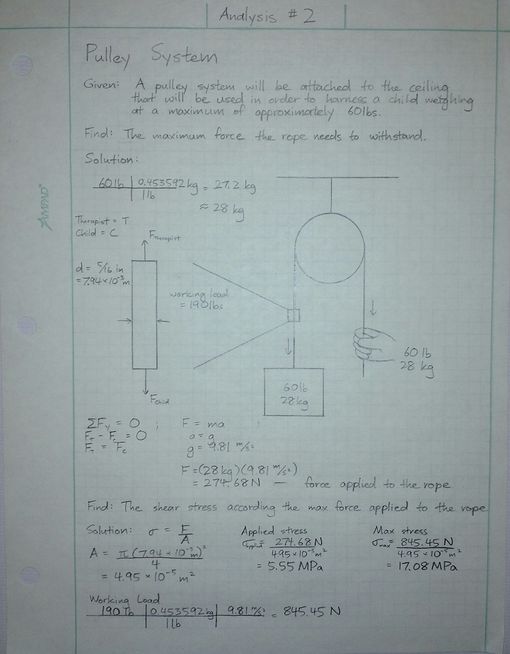 Analysis #2
Pulley System
Given: A pulley system will be attached to the ceiling
that will be used in order to harness a child weighing
at a maximum of approximately 60lbs.
Find: The maximum force the rope needs to withstand.
Solution:
60lb | 0.453592kg = 27.2 kg
1lb
≈ 28 kg
AMPAD
Therapist = T
Child = C
F Therapist
d = 5/16 in
= 7.94×10⁻³m
working load
= 190lbs
60lb
28kg
60 lb
28 kg
F child
ΣFy = 0 ;
F_T - F_c = 0
F_T = F_c
F = ma
a = g
g = 9.81 m/s²
F = (28kg)(9.81 m/s²)
= 274.68N — force applied to the rope
Find: The shear stress according the max force applied to the rope
Solution: σ = F/A
A = π(7.94×10⁻³m)²/4
= 4.95×10⁻⁵m²
Applied stress
= 274.68N
4.95×10⁻⁵m²
= 5.55 MPa
Max stress
σmax = 845.45N
4.95×10⁻⁵m²
= 17.08MPa
Working Load
190 lb | 0.453592kg | 9.81m/s² = 845.45 N
1lb